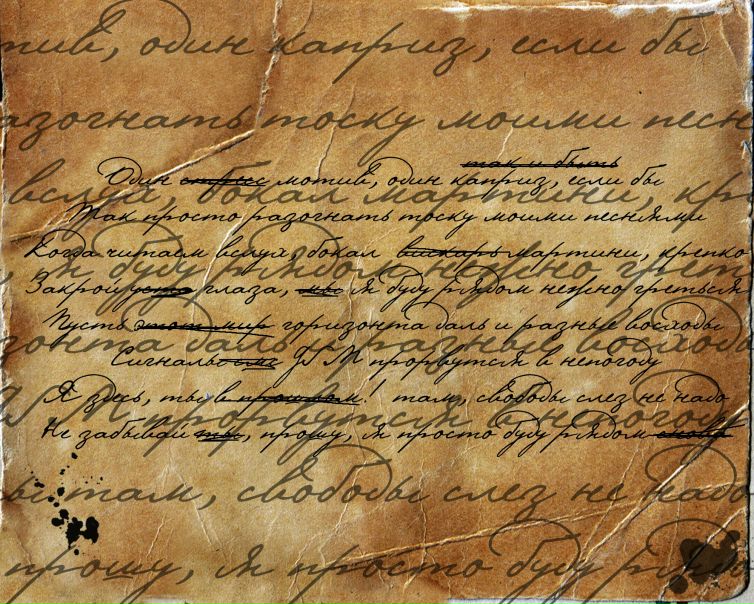 тив, один каприз, если бы
азогнать тоску моими песн
вслух, бокал мартини, кр
так и быть
Один мотив, один каприз, если бы
Так просто разогнать тоску моими песнями
Когда читаем вслух, бокал мартини, крепко
Закрой глаза, мы я буду рядом нежно греться
, я буду рядом нежно греть
Пусть этот мир горизонта даль и разные восходы
зонта даль и разные восходы
Сигналы GSM прорвутся в непогоду
Я здесь, ты в прошлом! там, свободы слез не надо
M прорвутся в непогоду
Не забывай ты, прошу, я просто буду рядом
ы там, свободы слез не надо
прошу, я просто буду рядом